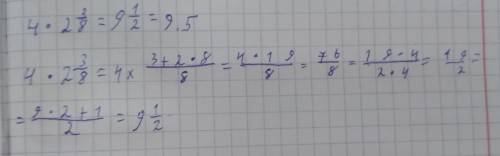 4 · 2 3/8 = 9 1/2 = 9.5
4 · 2 3/8 = 4 × (3+2·8)/8 = (4·19)/8 = 76/8 = (19·4)/(2·4) = 19/2 =
= (9·2+1)/2 = 9 1/2